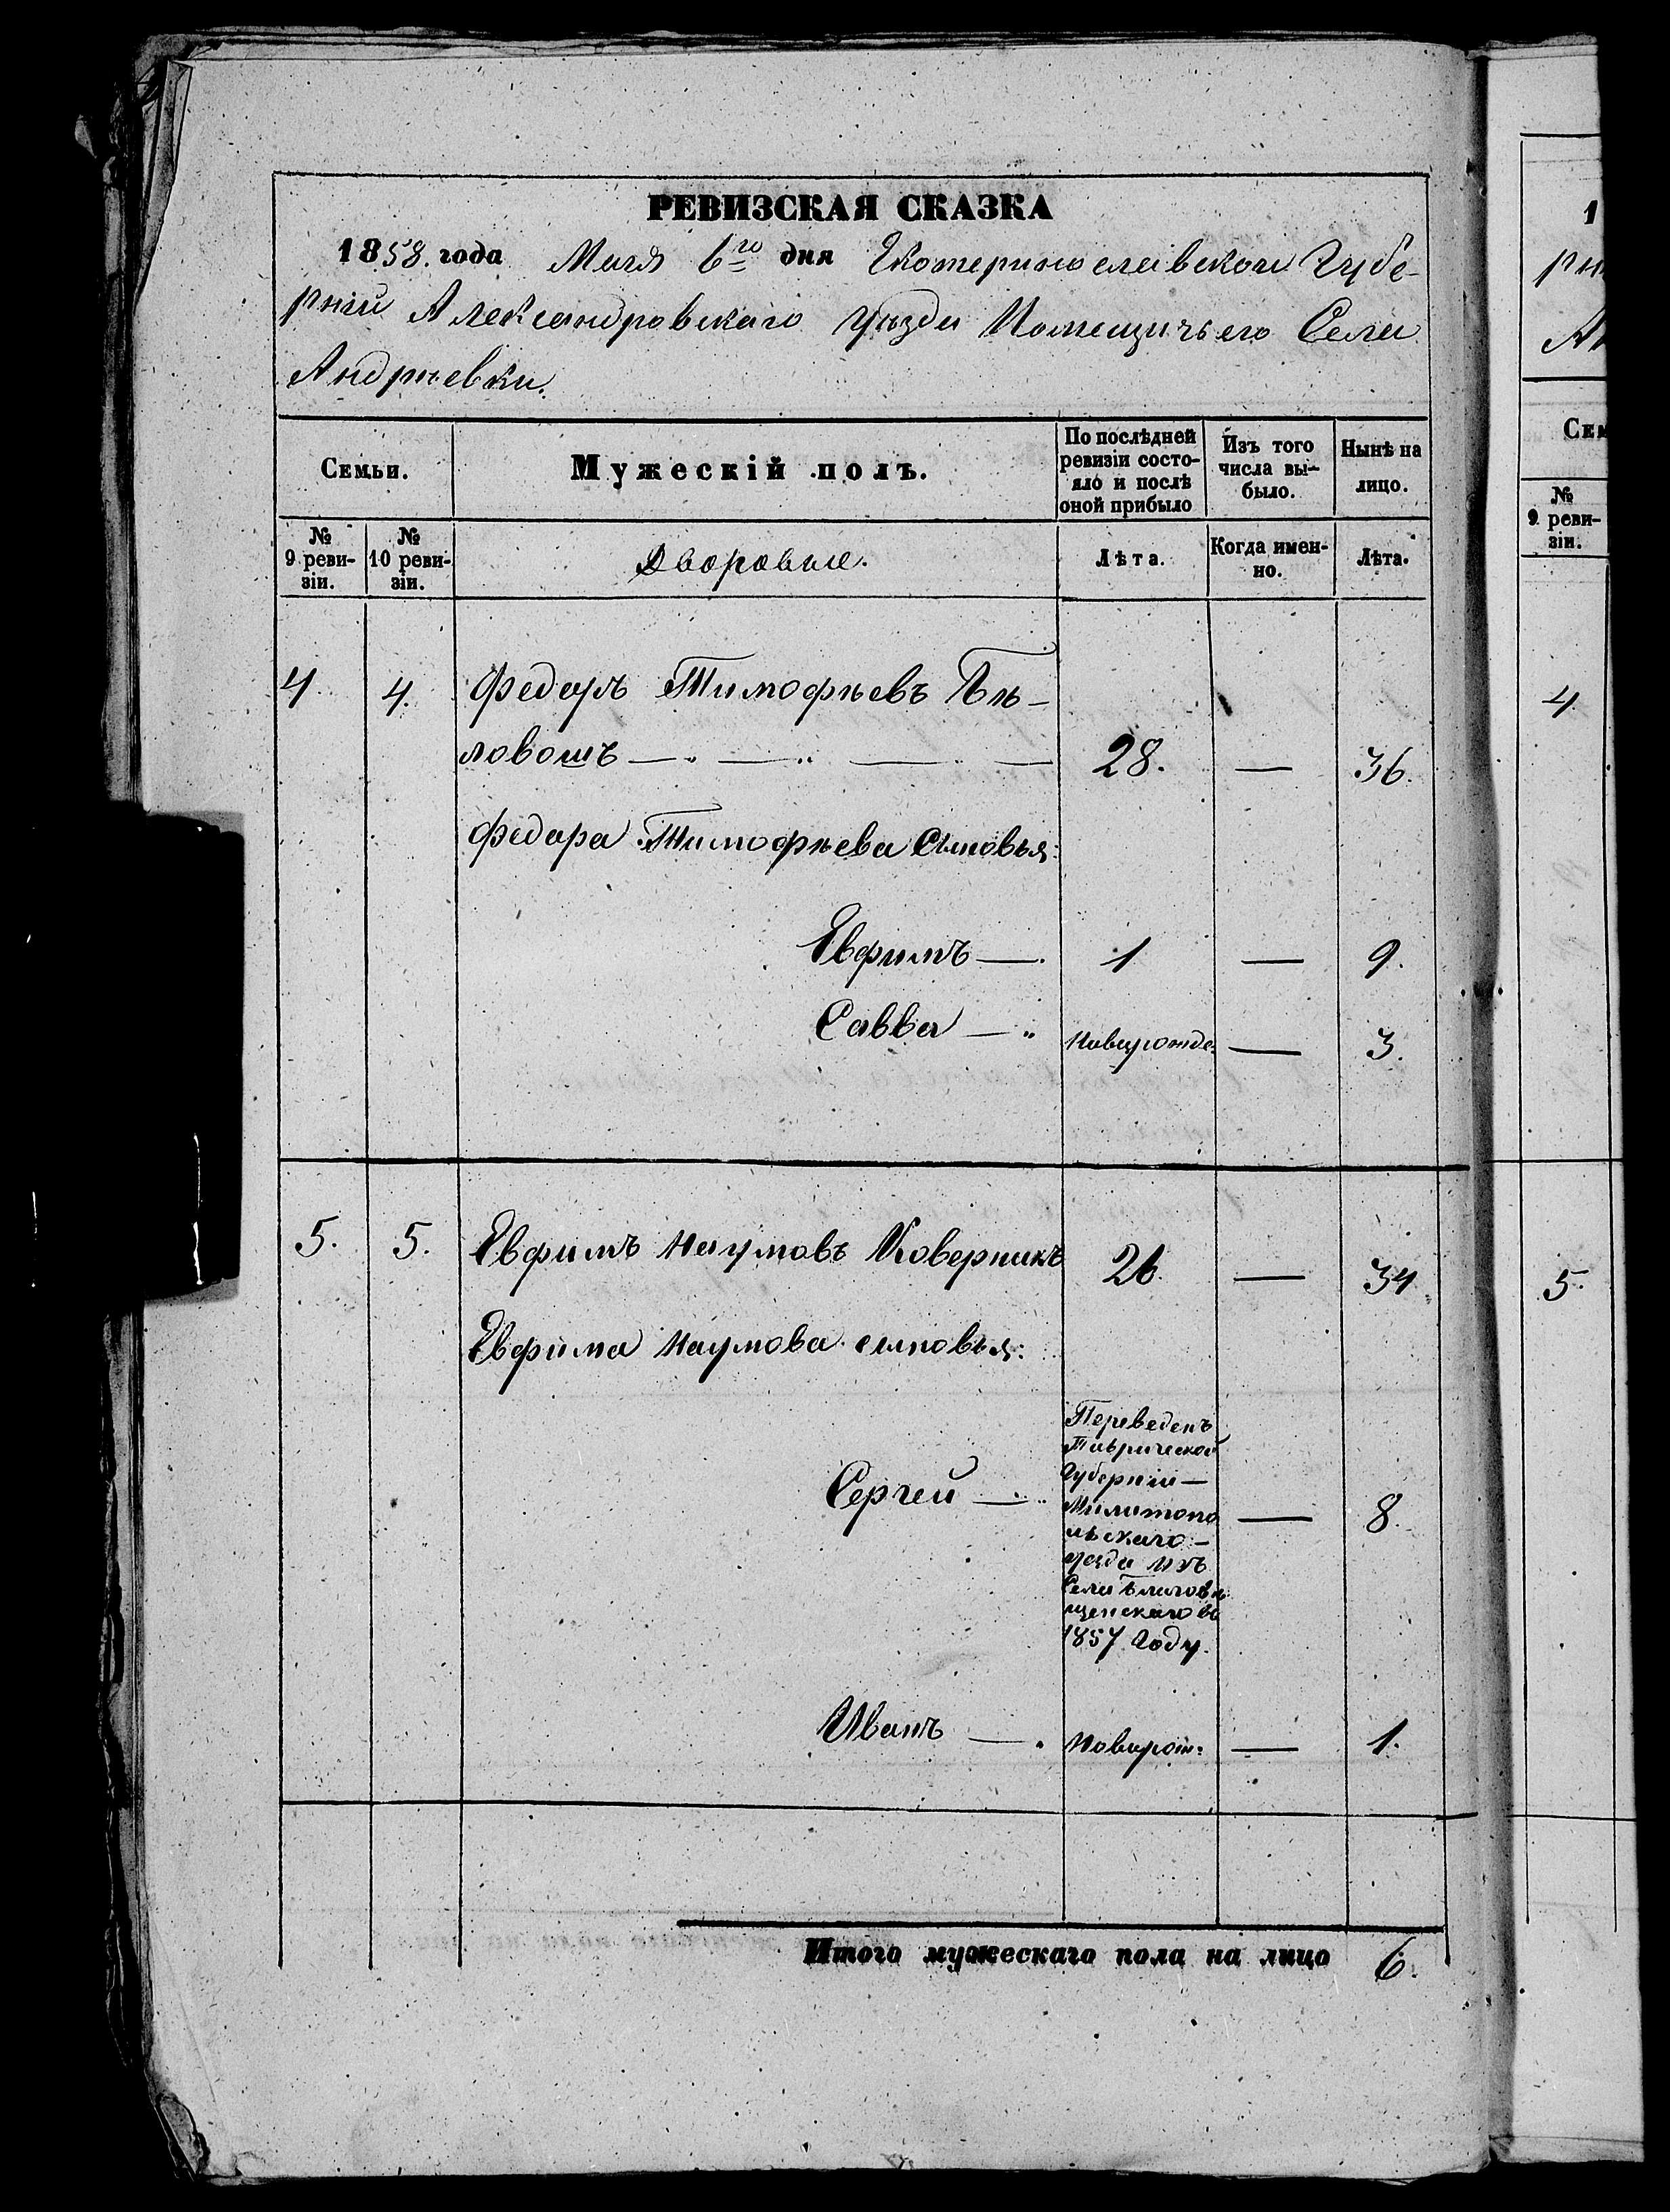 РЕВИЗСКАЯ СКАЗКА
1858. года Мая 6го дня Екатеринославской Губе-
рніи Александровскаго Уѣзда Помещичьего Села
Андрѣевки.
Семьи.
Мужескій полъ.
По послѣдней ревизіи состо-яло и послѣ оной прибыло
Изъ того числа вы-было.
Нынѣ на лицо.
№ 9 реви-зіи.
№ 10 реви-зіи.
Дворовые.
Лѣта.
Когда имен-но.
Лѣта.
4. 4. Федоръ Тимофѣевъ Бѣ-
ловошъ — 28. — 36.
Федора Тимофѣева Сыновья:
Евфимъ — 1 — 9.
Савва — Новорожде. — 3.
5. 5. Евфимъ Наумовъ Коверникъ 26. — 34
Евфима Наумова сыновья:
Сергей — — 8.
Переведенъ
Таврической
Губерніи —
Милитопо
льскаго —
уезда изъ
Села Благовѣ
щенскаго въ
1857 Году.
Иванъ — Новорож: — 1.
Итого мужескаго пола на лицо 6.
1
рн
Ан
Сем
№ 9 реви-зіи.
4.
5.